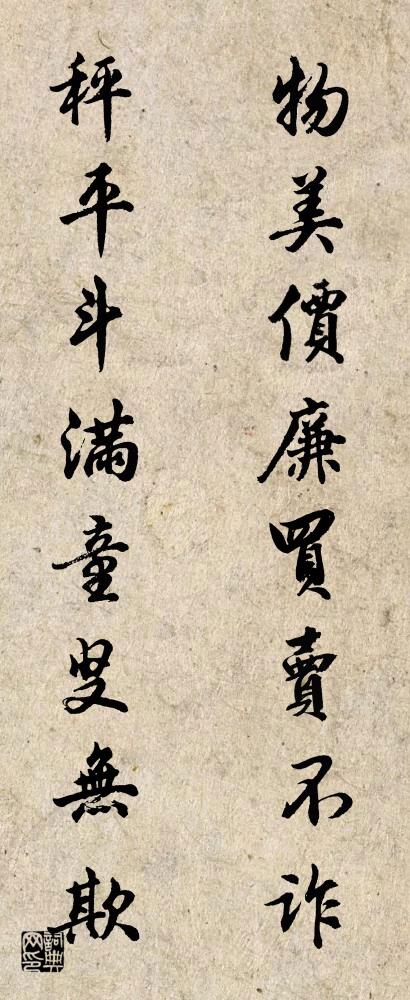 物美價廉買賣不詐
秤平斗滿童叟無欺
詞典网印